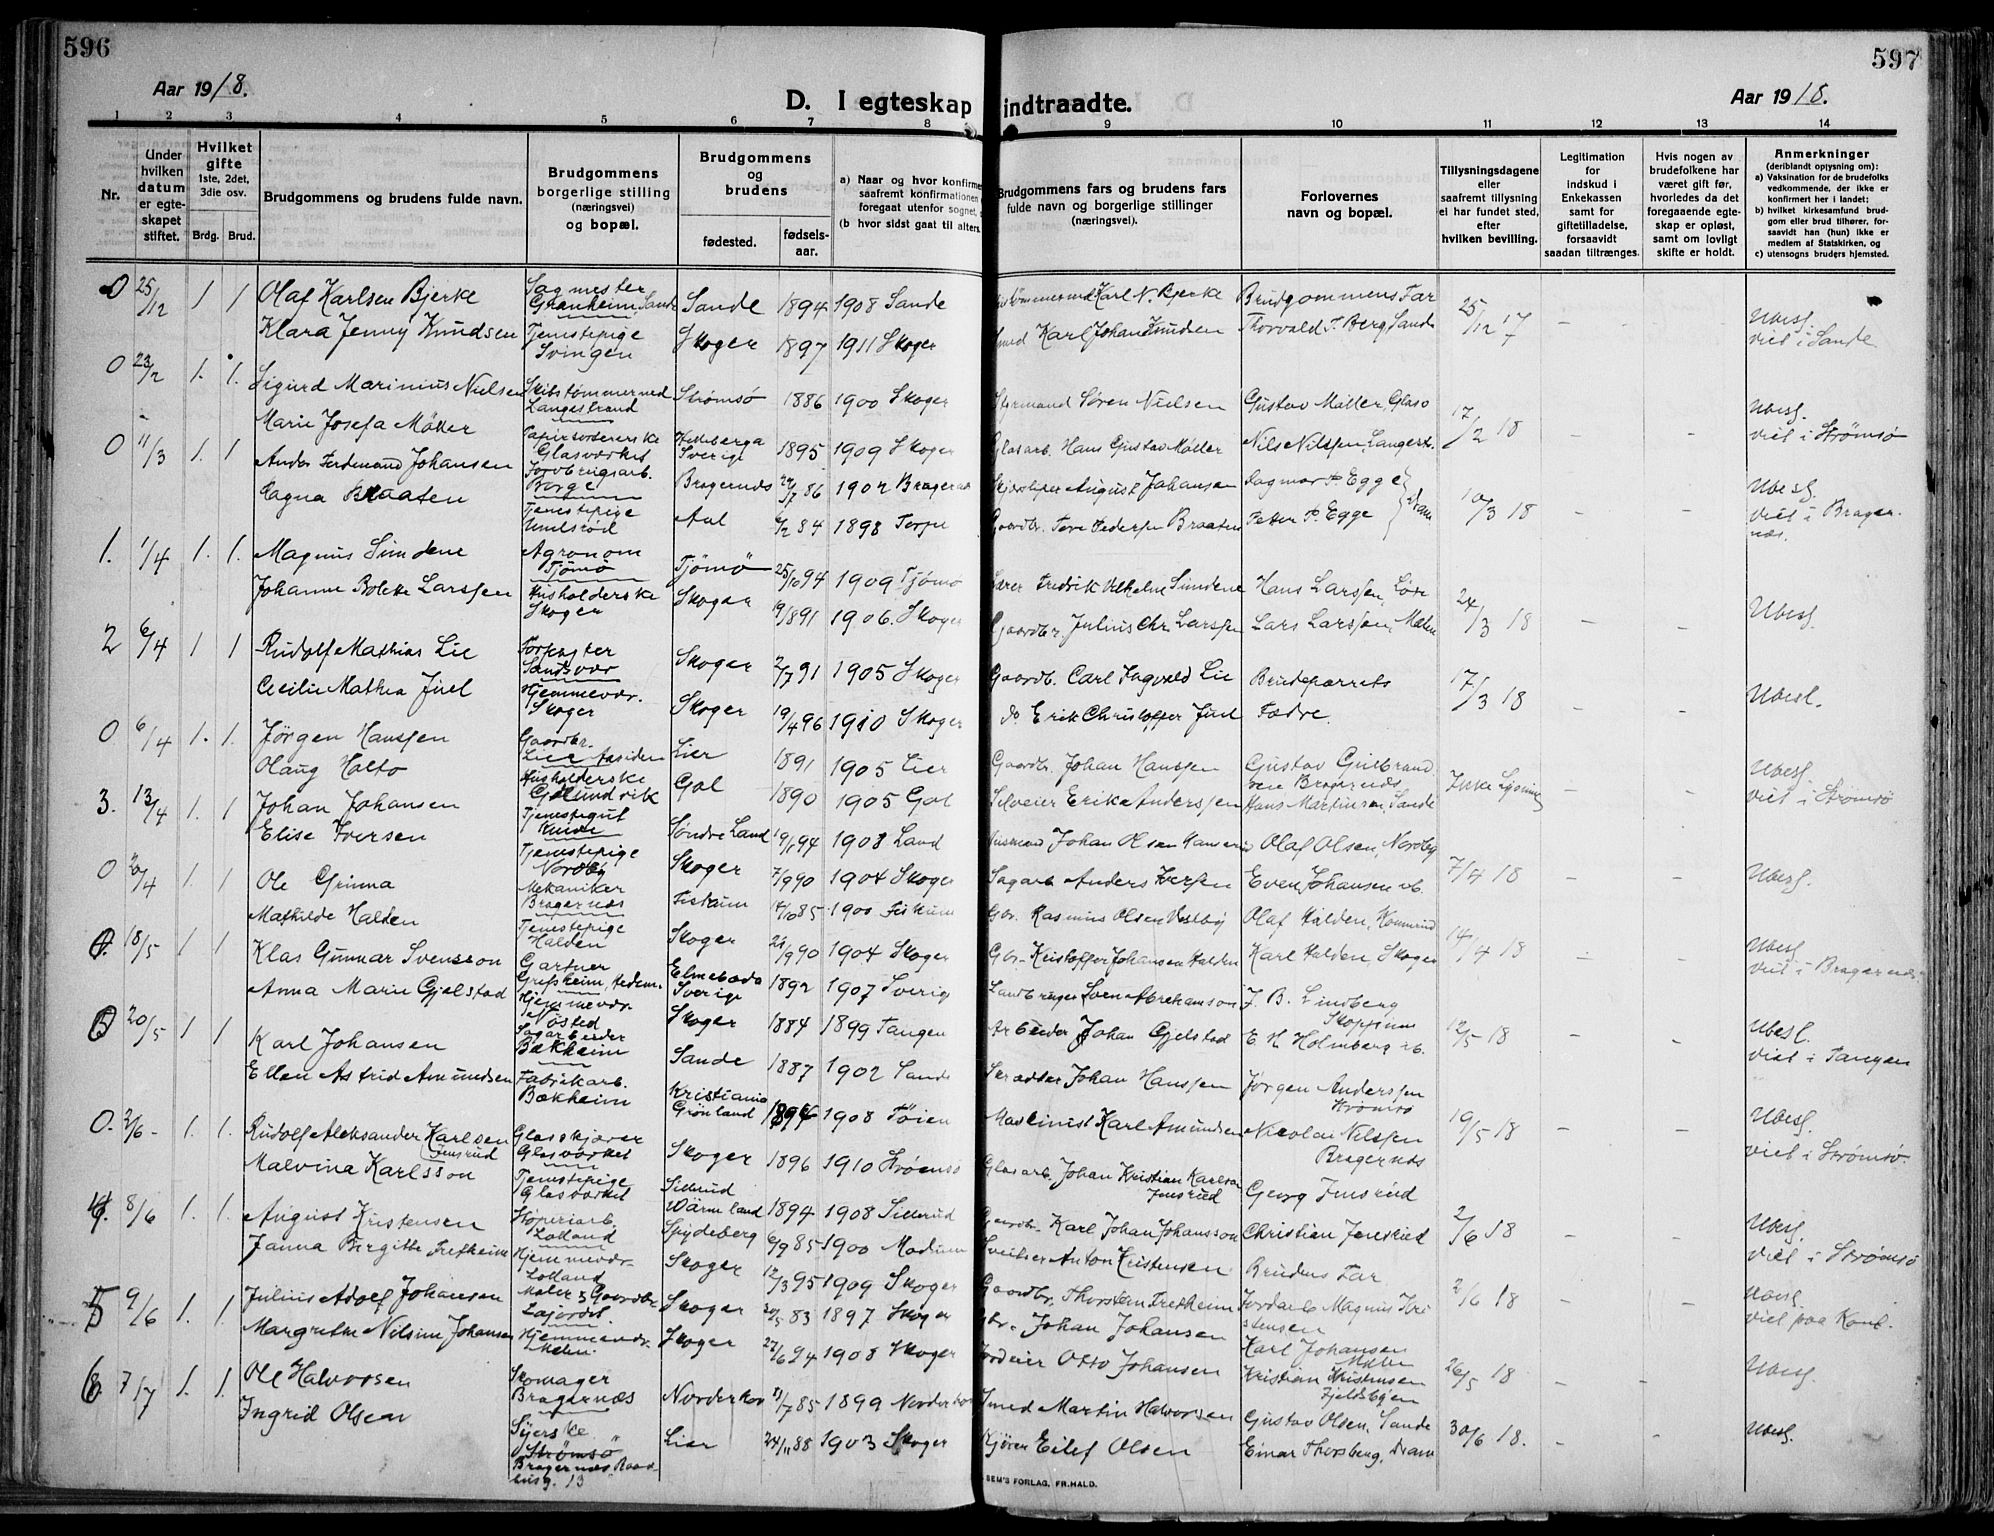 596
Aar 1918.
D. I egteskap
1 2 3 4 5 6 7 8
Nr.
Under hvilken datum er egte-skapet stiftet.
Hvilket gifte 1ste, 2det, 3die osv.
Brdg. Brud.
Brudgommens og brudens fulde navn.
Brudgommens borgerlige stilling (næringsvei) og bopæl.
Brudgommens og brudens
fødested. fødsels-aar.
a) Naar og hvor konfirme
saafremt konfirmationen
foregaat utenfor sognet,
(b hvor sidst gaat til alters.
0 25/12 1 1 Olaf Karlsen Bjerke Sagmester Granheim, Sande Sande 1894 1908 Sande
Klara Jenny Knudsen Tjenestepige Svingen Skoger 1897 1911 Skoger
0 23/2 1. 1. Sigurd Marinius Nielsen Skibstømmermed Langestrand Strømsø 1886 1900 Skoger
Marie Josefa Möller Papirsorterske Glasværket Sverige 1895 1909 Skoger
0 11/3 1. 1 Anders Ferdinand Johansen Borge Bragernæs 86 1902 Bragernæs
Braaten Tjenestepige Aal 84 1898 Torpe
1. 1/4 1. 1. Magnus Sundene Agronom Tjømø Tjömö 25/10 94 1909 Tjømø
Johanne Bolette Larssen Husholderske Skoger Skoger 19/8 91 1906. Skoger
2 6/4 1 1 Rudolf Mathias Lie Forpagter Sandsvær Skoger 2/7 91 1905 Skoger
Cecilie Mathea Juel Hjemmevær. Skoger Skoger 19/4 96 1910 Skoger
0 6/4 1. 1. Jørgen Hanssen Gaardbr. Lier Lier 1891 1905 Lier
Olaug Holto Husholderske Gol 1890 1905 Gol
3. 13/4 1. 1 Johan Johansen Tjenestegut Søndre Land 19/1 94 1908 Land
Elise Iversen Tjenestepige Nordby Skoger 7/9 90 1904 Skoger
0 20/4 1. 1 Ole Grinna Mekaniker Bragernæs Fiskum 14/10 85 1900 Fiskum
Mathilde Halden Tjenestepige Halden Skoger 21/9 90 1904 Skoger
0. 18/5 1 1 Klas Gunnar Svensson Gartner Sverige 1892 1907 Sverig
Anna Marie Gjelstad Hjemmevær. Nøsted Skoger 1884 1899 Tangen
0 20/5 1 1 Karl Johansen Sagarbeider Bækheim Sande 1887 1902 Sande
Ellen Astrid Amundsen Fabrikarb. Bækheim Kristiania Grönland 1894 1908 Töien
0. 2/6 1. 1. Rudolf Aleksander Karlsen Jensrud Glasskjærer Glasværket Skoger 1896 1910 Strømsø
Malvina Karlsson Tjenestepige Glasværket Sillerud Wärmland 1894 1908 Sillerud
4. 8/6 1. 1. August Kristensen Høveriarb. Lolland Spydeberg 6/9 85 1900 Modum
Janna Birgitte Tretheim Hjemmevær. Lolland Skoger 12/3 95 1909 Skoger
5 9/6 1. 1. Julius Adolf Johansen Maler & Gaardbr. Skoger 20/5 83 1897 Skoger
Margrethe Nilsine Johansen Hjemmevær. Skoger 27/6 94 1908 Skoger
6 7/7 1. 1. Ole Halvorsen Skomager Bragernæs Norderhov 85 1899 Norderhov
Ingrid Olsen Syerske Strømsö Bragernæs, Raad-husg. 13 Lier 24/11 88 1903 Skoger
597
Aar 1918.
indtraadte.
9 10 11 12 13 14
Brudgommens fars og brudens fars fulde navn og borgerlige stillinger (næringsvei).
Forlovernes navn og bopæl.
Tillysningsdagene eller saafremt tillysning ei har fundet sted, efter hvilken bevilling.
Legitimation for indskud i Enkekassen samt for giftetilladelse, forsaavidt saadan tiltrænges.
Hvis nogen av brudefolkene har været gift før, hvorledes da det foregaaende egte-skap er opløst, samt om lovligt skifte er holdt.
Anmerkninger
(deriblandt opjysning om):
a) Vaksination for de brudefolks vedkommende, der ikke er konfirmert her i landet;
b) hvilket kirkesamfund brud-gom eller brud tilhører, for-saavidt han (hun) ikke er medlem af Statskirken, og
c) utensogns bruders hjemsted.
Karl N. Bjerke Brudgommens Far 25/12 17 – Ubesl. viet i Sande
Karl Johan Knudsen Thorvald Berg, Sande
Styrmand Søren Nielsen Gustav Møller, Glasv 17/2 18 – – Ubesl. viet i Strömsø
Glasarb. Hans Gustav Møller Nils Nilssen, Langestr.
August Johansen Dagmar Egge 10/3 18 – – Ubesl. viet i Bragernæs.
Gaardbr. Tore Pedersen Braaten Peter P. Egge Dram
Lærer Fredrik Vilhelm Sundene Hans Larssen, 24/3 18 – – Ubesl.
Gaardbr. Julius Chr. Larssen Lars Larssen,
Gaardb. Carl Ingvald Lie Brudeparrets 17/3 18 – – Ubesl.
do Erik Christoffer Juel Fædre.
Gaardb. Johan Hanssen Gustav Gulbrandsen Bragernæs Ikke Lysning – – Ubesl. viet i Strømsö
Erik Anderssen Hans Martinsen, Sande
Johan Olsen Olaf Olsen, Nordby 7/4 18 – – Ubesl.
Sagarb. Anders Iversen Even Johansen
Gbr. Rasmus Olsen Vestby Olaf Halden, 14/4 18 – – Ubesl. viet i Bragernæs
Gbr. Kristoffer Johansen Halden Karl Halden, Skoger
Landbruger Sven Abrahamsson J. B. Lindberg Skoppum 12/5 18 – – Ubesl. viet i Tangen
Arbeider Johan Gjelstad E. H. Holmberg
Skrædder Johan Hanssen Jørgen Anderssen Strömsø 19/5 18 – – Ubesl. viet i Strømsø.
Maskinist Karl Amundsen Nicolai Nilssen Bragernæs
Glasarb. Johan Kristian Karlsen Jensrud Georg Jensrud 2/6 18 – – Ubesl. viet i Strømsø
Gaardbr. Karl Johan Johansson Christian Jensrud
Sveitser Anton Kristensen Brudens Far 2/6 18 – – Ubesl. viet paa Kont.
Gaardbr. Thorstein Tretheim Magnus Kristensen
Gbr. Johan Johansen Karl Johansen 26/5 18 – – Ubesl.
Otto Johansen Kristian Kristensen
Smed Martin Halvorsen Gustav Olsen, Sande 30/6 18. – – Ubesl.
Kjörer Eilef Olsen Einar Thorsberg, Dram
SEM'S FORLAG, FR.HALD.